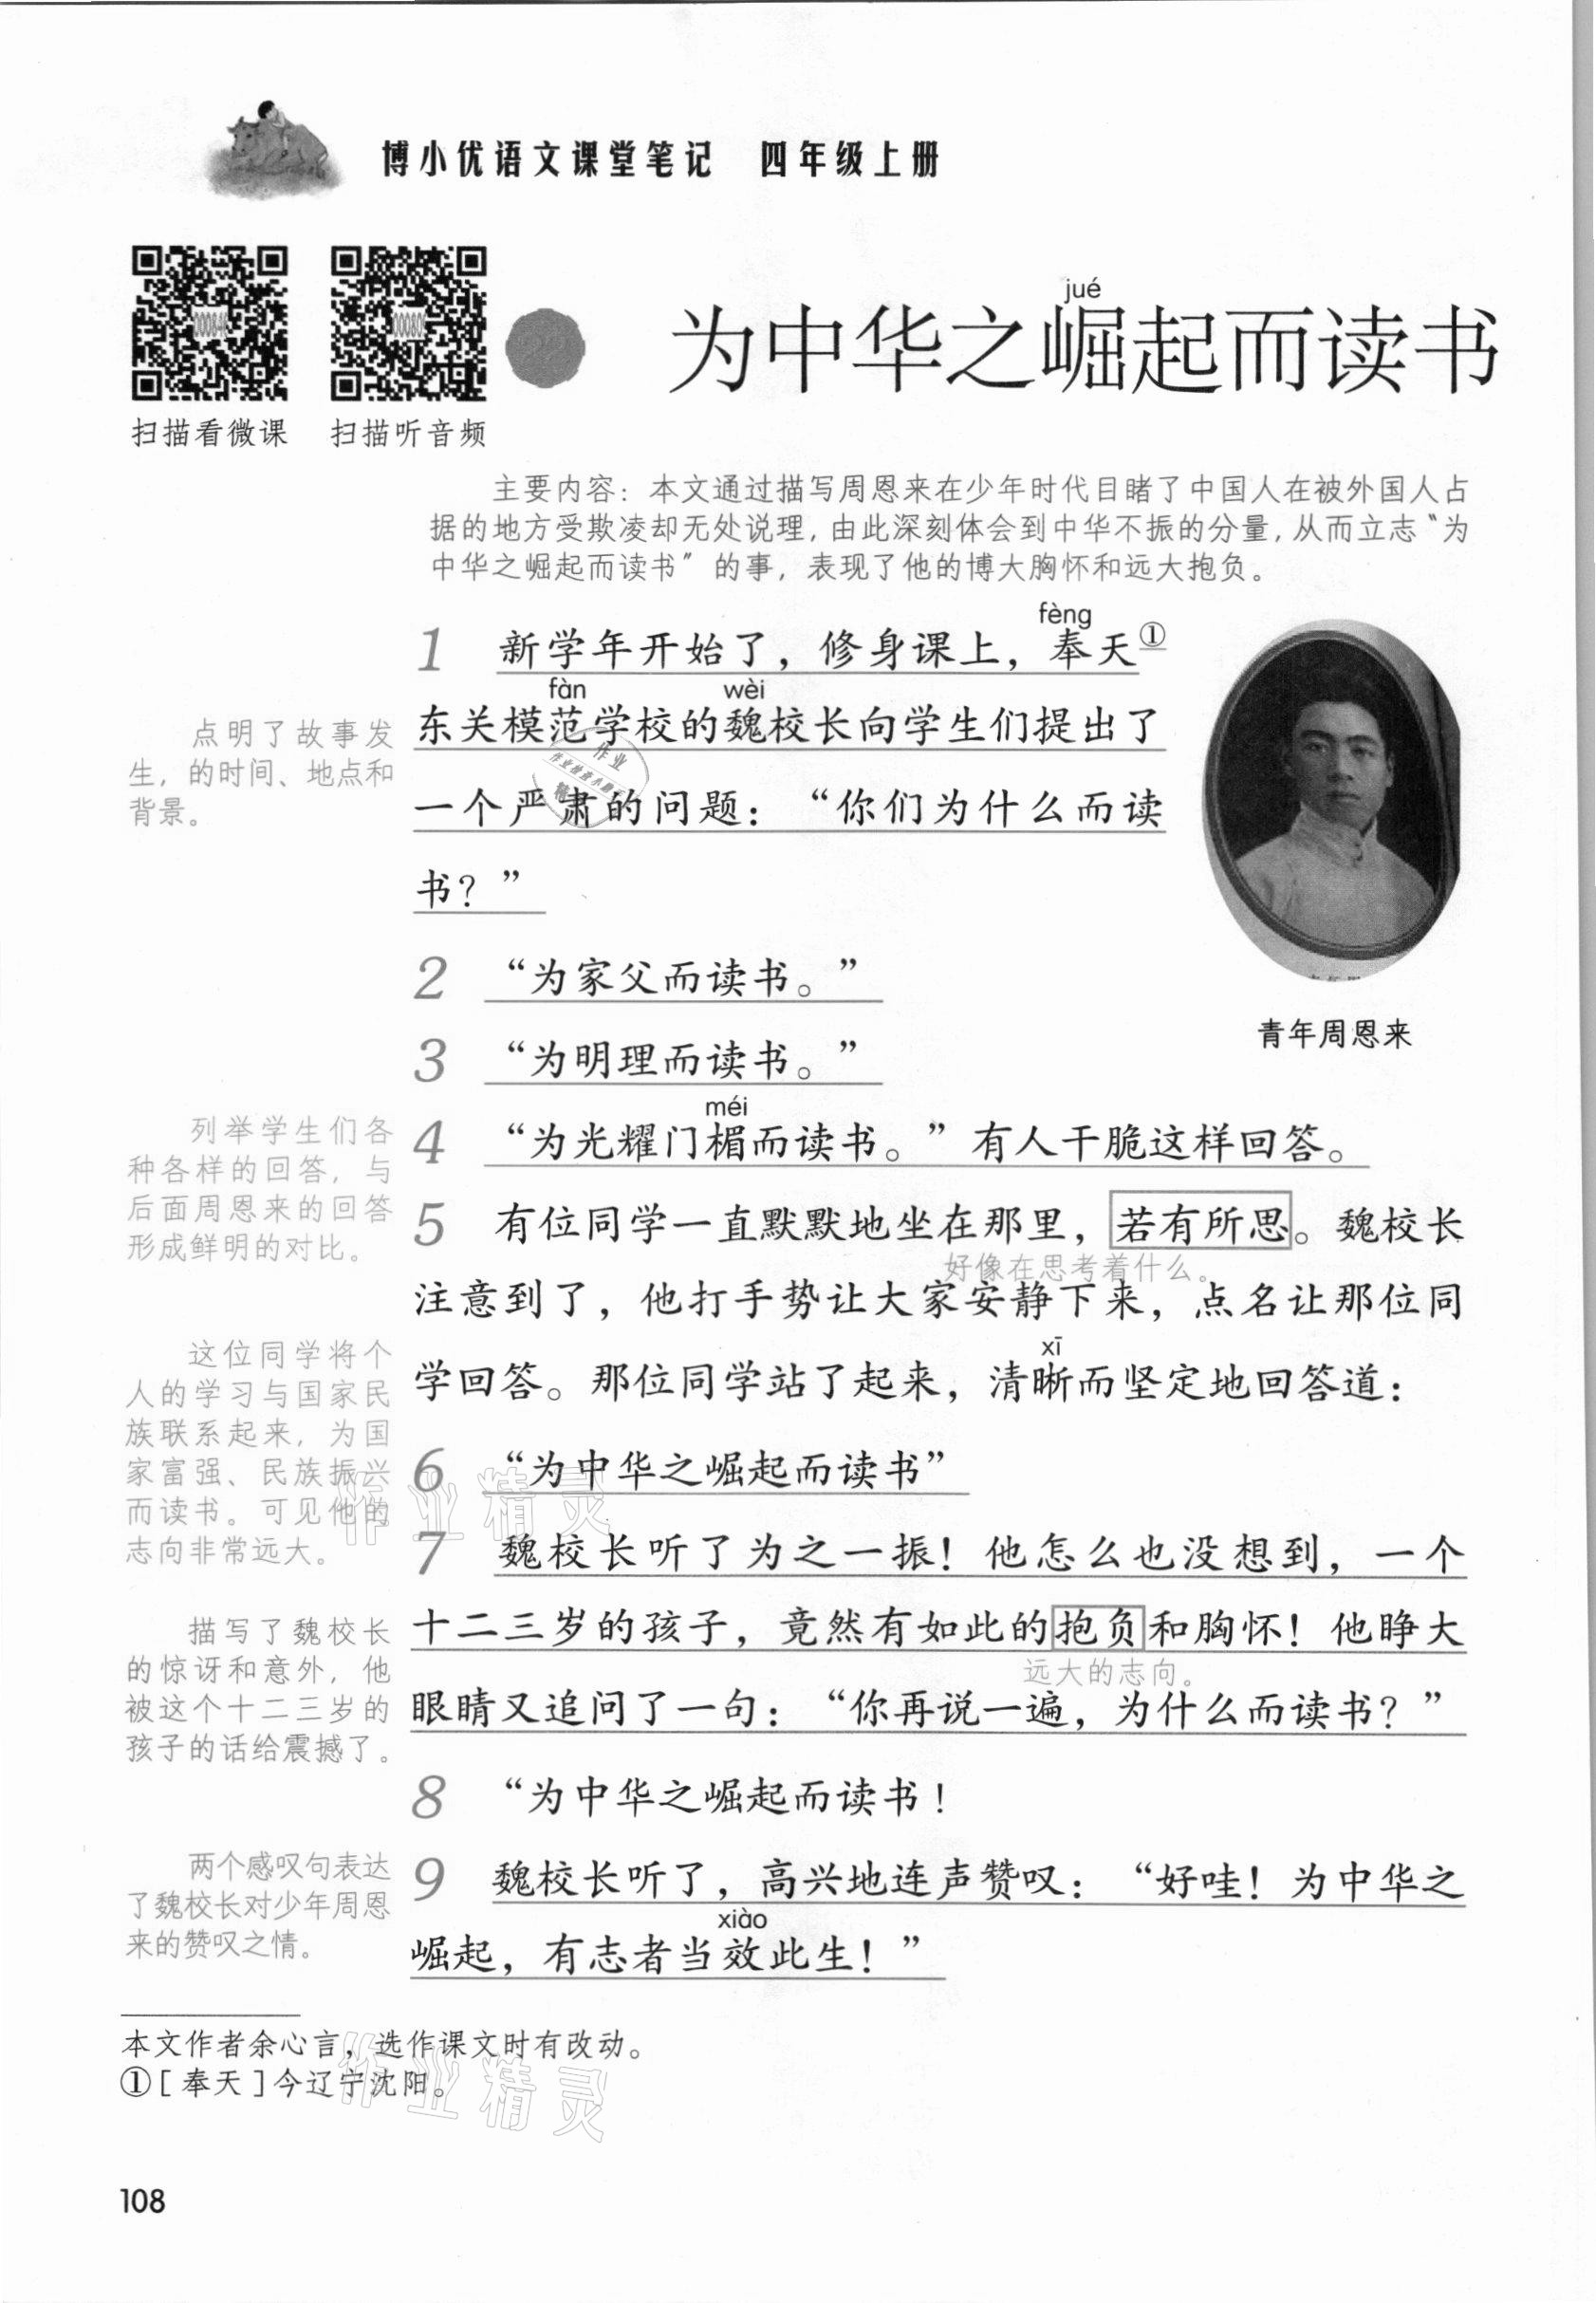 博小优语文课堂笔记 四年级上册
扫描看微课 扫描听音频
22
jué
为中华之崛起而读书
主要内容：本文通过描写周恩来在少年时代目睹了中国人在被外国人占
据的地方受欺凌却无处说理，由此深刻体会到中华不振的分量，从而立志“为
中华之崛起而读书”的事，表现了他的博大胸怀和远大抱负。
fèng
1 新学年开始了，修身课上，奉天①
fàn wèi
东关模范学校的魏校长向学生们提出了
一个严肃的问题：“你们为什么而读
书？”
点明了故事发
生，的时间、地点和
背景。
2 “为家父而读书。”
青年周恩来
3 “为明理而读书。”
méi
4 “为光耀门楣而读书。”有人干脆这样回答。
列举学生们各
种各样的回答，与
后面周恩来的回答
形成鲜明的对比。
5 有位同学一直默默地坐在那里，若有所思。魏校长
好像在思考着什么。
注意到了，他打手势让大家安静下来，点名让那位同
xī
学回答。那位同学站了起来，清晰而坚定地回答道：
这位同学将个
人的学习与国家民
族联系起来，为国
家富强、民族振兴
而读书。可见他的
志向非常远大。
6 “为中华之崛起而读书”
7 魏校长听了为之一振！他怎么也没想到，一个
十二三岁的孩子，竟然有如此的抱负和胸怀！他睁大
远大的志向。
眼睛又追问了一句：“你再说一遍，为什么而读书？”
描写了魏校长
的惊讶和意外，他
被这个十二三岁的
孩子的话给震撼了。
8 “为中华之崛起而读书！
9 魏校长听了，高兴地连声赞叹：“好哇！为中华之
xiào
崛起，有志者当效此生！”
两个感叹句表达
了魏校长对少年周恩
来的赞叹之情。
本文作者余心言，选作课文时有改动。
①［奉天］今辽宁沈阳。
作业精灵
作业精灵
108